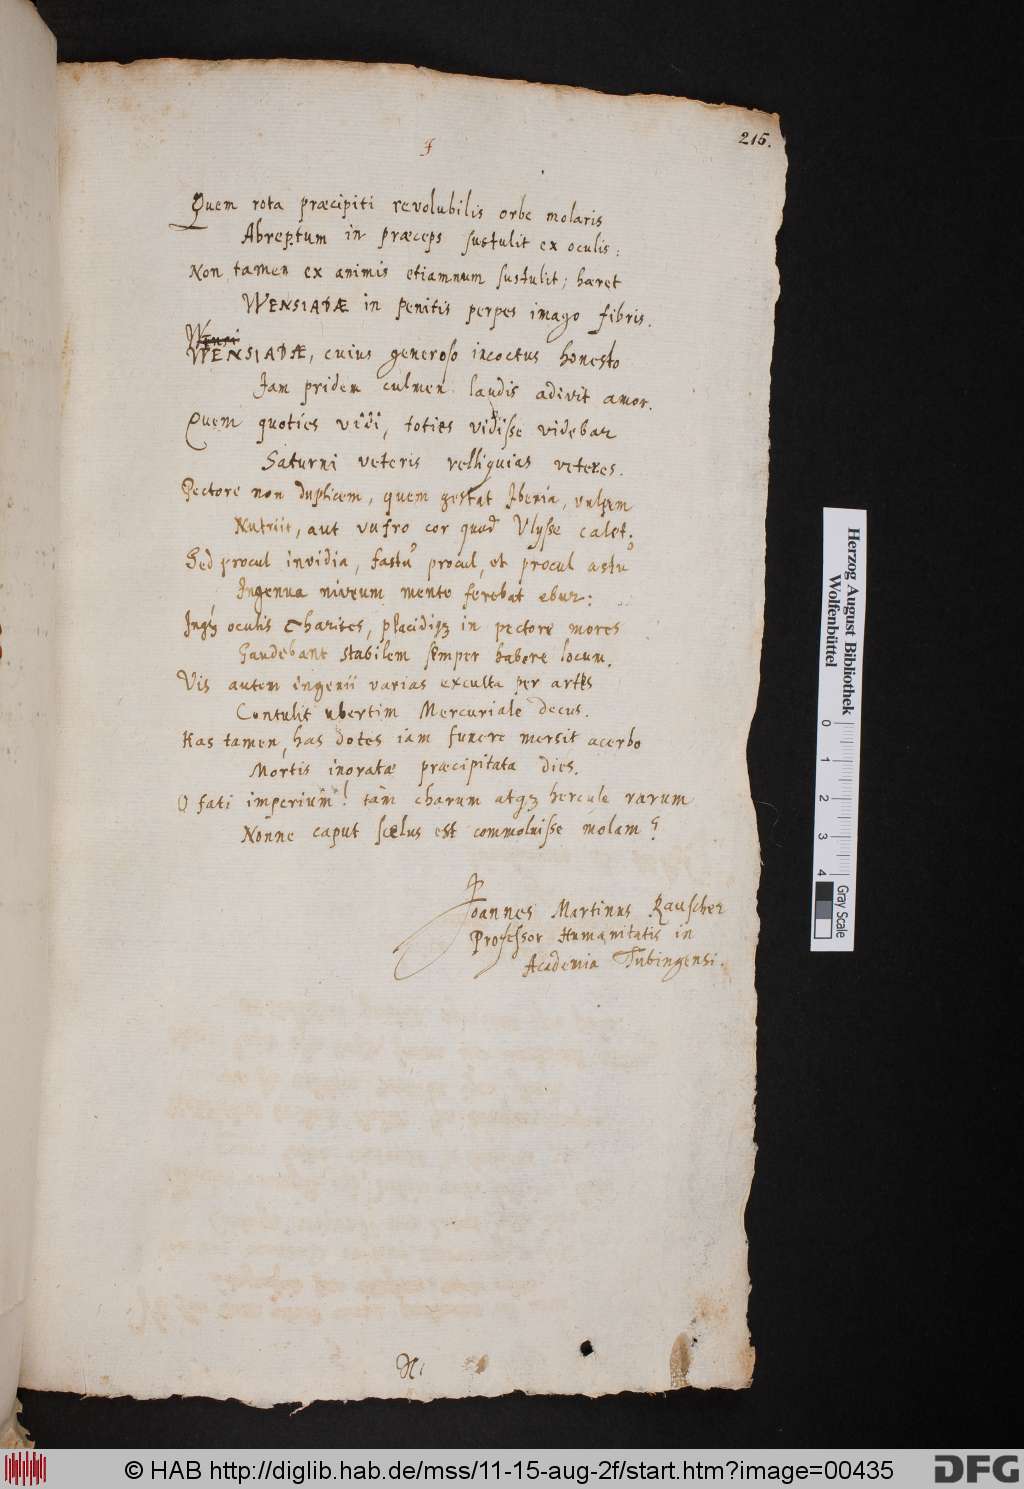 215.
Quem rota præcipiti revolubilis orbe molaris
Abreptum in præceps sustulit ex oculis:
Non tamen ex animis etiamnum sustulit; hæret
WENSIADÆ in penitis perpes imago fibris.
Wensi
WENSIADÆ, cuius generoso incoctus honesto
Jam pridem culmen laudis adivit amor.
Quem quoties vîdî, toties vidisse videbar
Saturni veteris relliquias veteres.
Pectore non duplicem, quem gestat Iberia, vulpem
Nutriit, aut vafro cor quod Ulysse calet:
Sed procul invidia, fastus procul, et procul astus
Ingenua niveum mente ferebat ebur:
Inque oculis Charites, placidique in pectore mores
Gaudebant stabilem semper habere locum.
Vis autem ingenii varias exculta per artes
Contulit ubertim Mercuriale decus.
Has tamen, has dotes iam funere mersit acerbo
Mortis inoratæ præcipitata dies.
O fati imperium! tàm charum atque hercule rarum
Nonne caput scelus est commoluisse molam?
Joannes Martinus Rauscher
Professor Humanitatis in
Academia Tubingensi.
Herzog August Bibliothek
Wolfenbüttel
0 1 2 3 4
Gray Scale
© HAB http://diglib.hab.de/mss/11-15-aug-2f/start.htm?image=00435
DFG